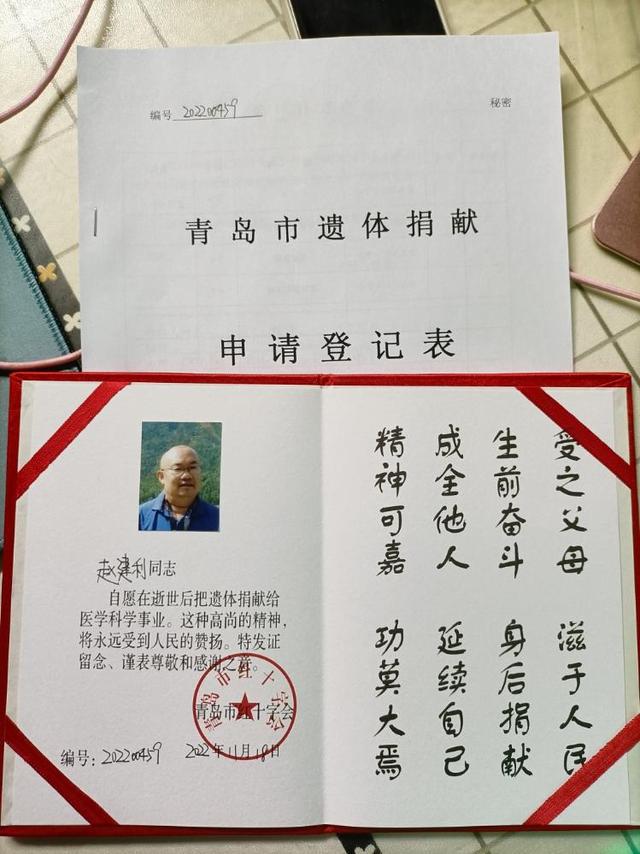 编号 202200459
秘密
青岛市遗体捐献
申请登记表
赵建利同志
自愿在逝世后把遗体捐献给
医学科学事业。这种高尚的精神，
将永远受到人民的赞扬。特发证
留念、谨表尊敬和感谢之意。
青岛市红十字会
青岛市红十字会
编号：202200459 2022年11月18日
受之父母 滋于人民
生前奋斗 身后捐献
成全他人 延续自己
精神可嘉 功莫大焉